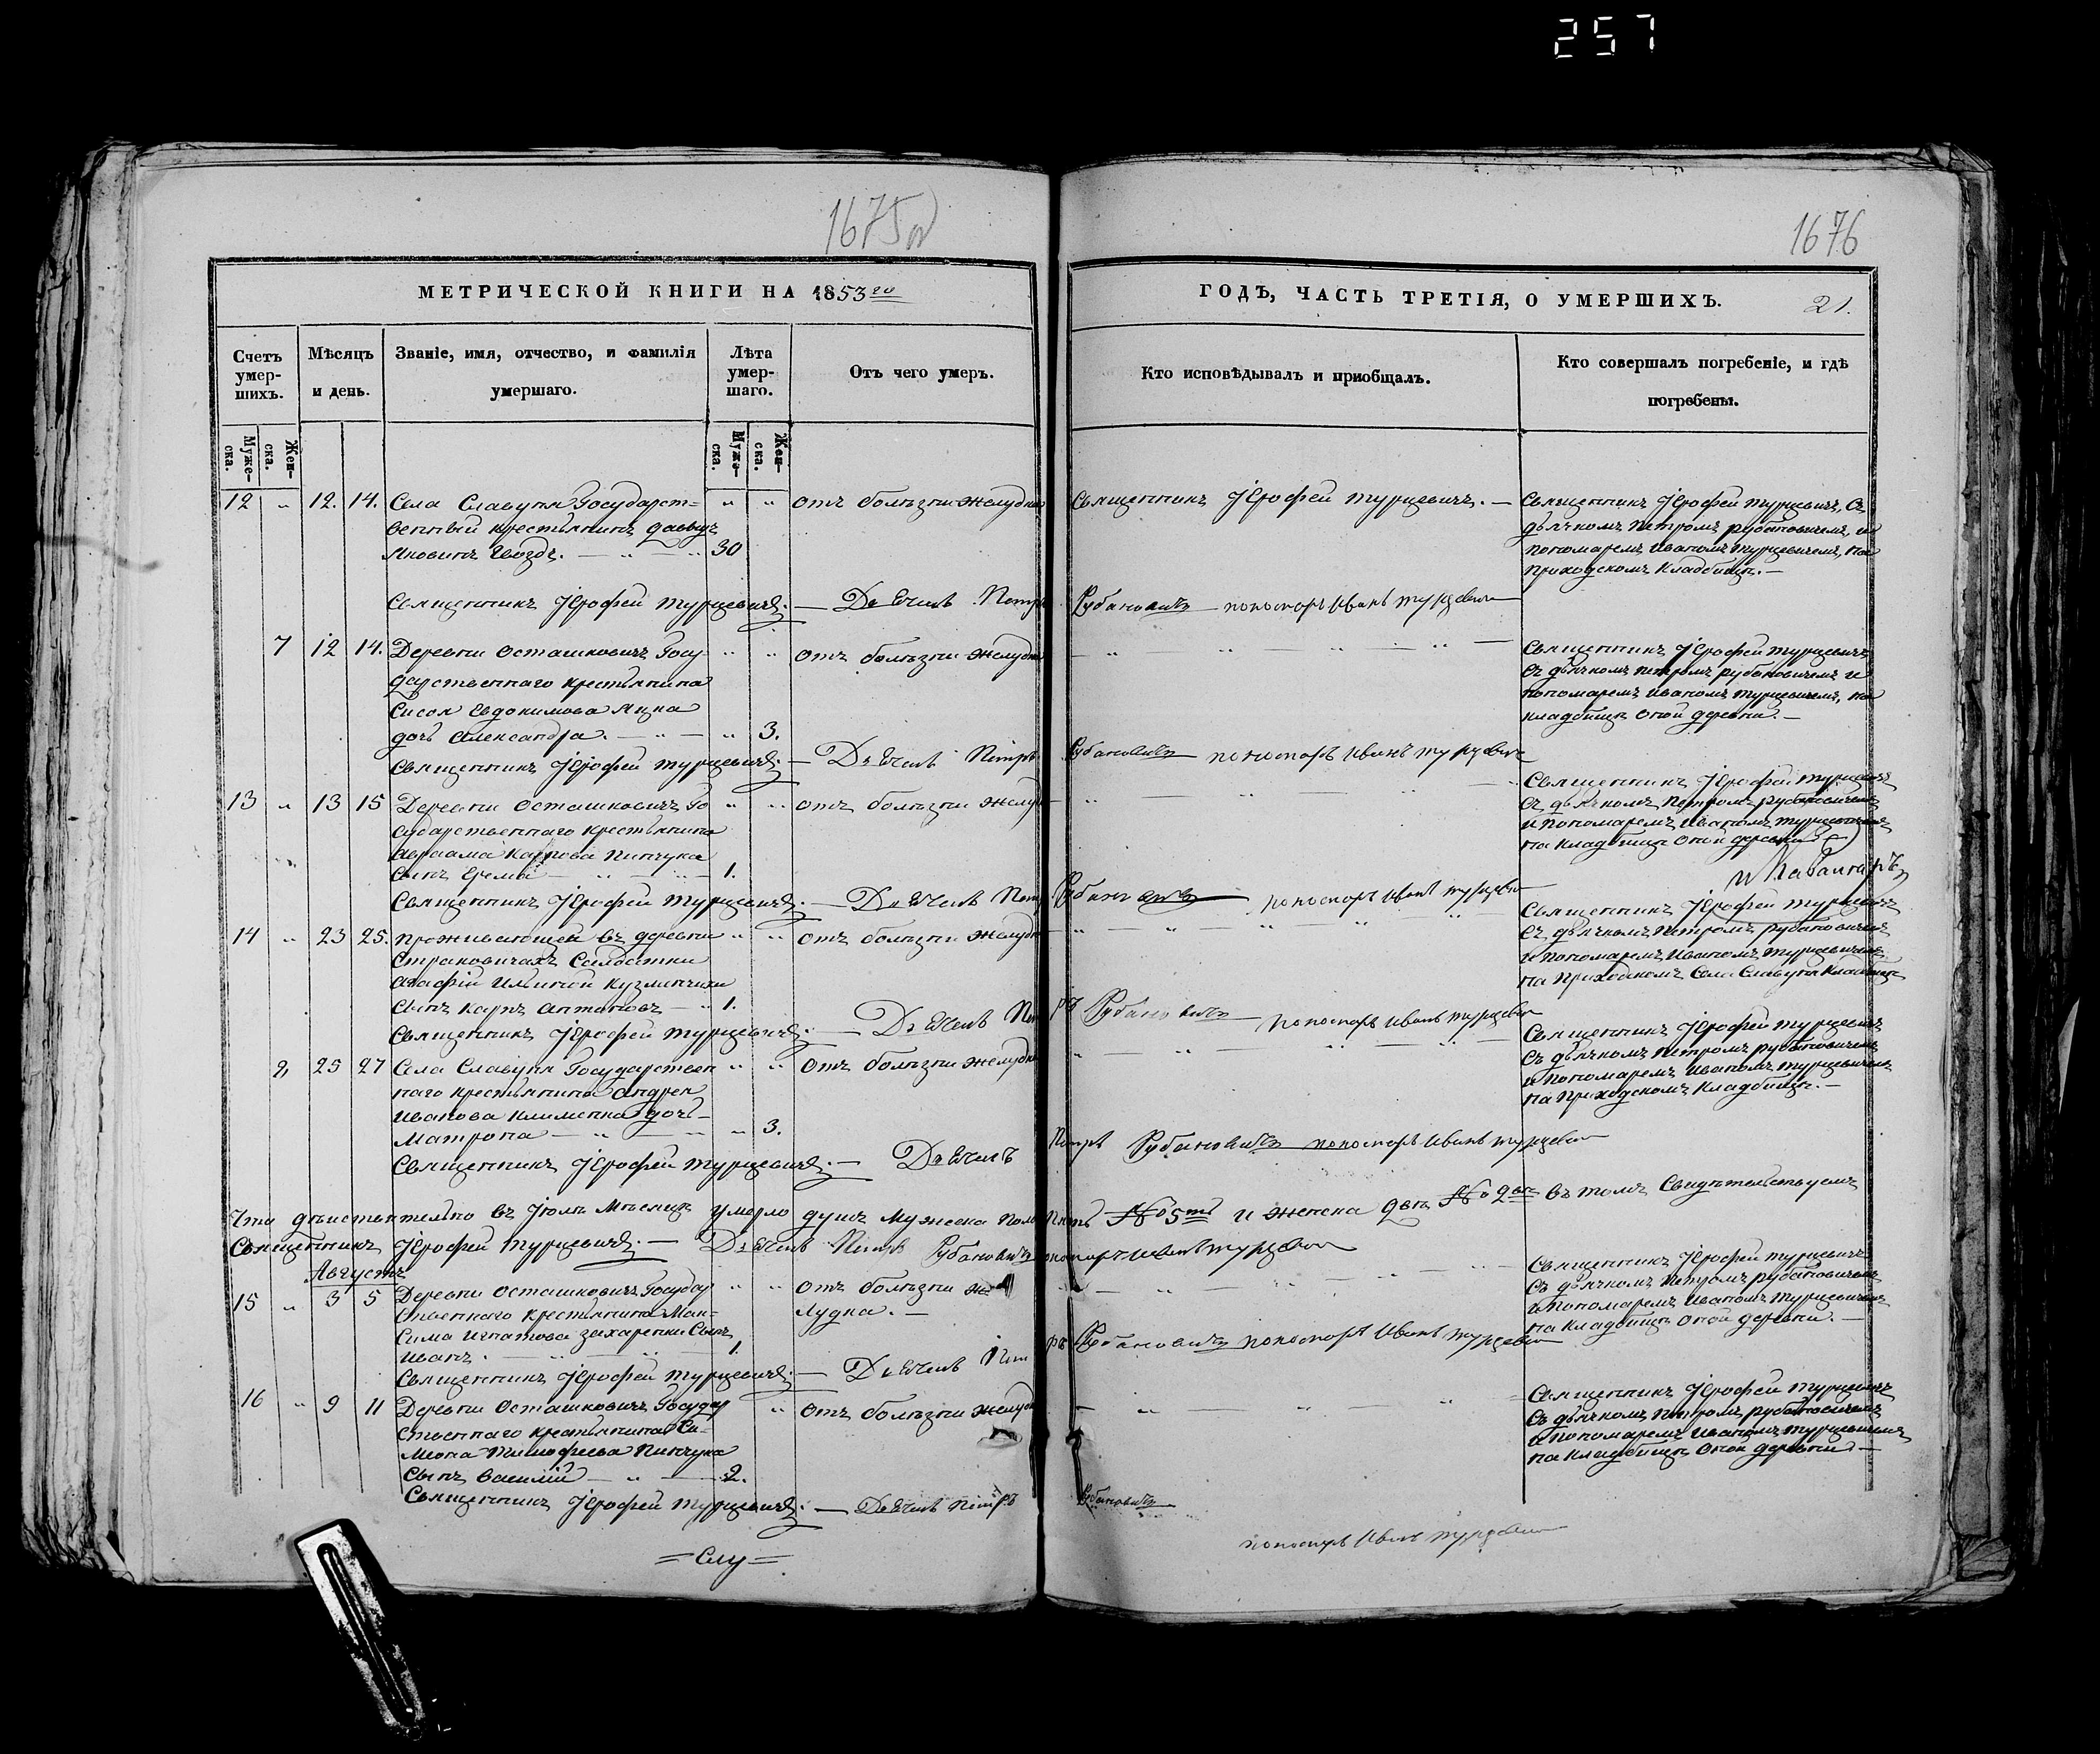 257
1675об
1676
МЕТРИЧЕСКОЙ КНИГИ НА 1853го
ГОДЪ, ЧАСТЬ ТРЕТІЯ, О УМЕРШИХЪ. 21.
Счетъ умер-шихъ.
Мѣсяцъ и день.
Званіе, имя, отчество, и фамилія умершаго.
Лѣта умер-шаго.
Отъ чего умеръ.
Кто исповѣдывалъ и приобщалъ.
Кто совершалъ погребеніе, и гдѣ погребены.
Муже-ска.
Жен-ска.
Муже-ска.
Жен-ска.
12 „ 12. 14. Села Славупя Государст= „ „ отъ болѣзни желудка
венный крестьянинъ Давыдъ
Яковинъ Гвоздь. — „ — „ 30
Священникъ Іерофей Турцевичъ. —
Священникъ Іерофей Турцевичъ, съ
дьячкомъ Петромъ Рубановичемъ, и
пономаремъ Иваномъ Турцевичемъ, на
приходскомъ кладбищѣ. —
Священникъ Іерофей Турцевичъ. — Дьячекъ Петръ Рубановичъ пономарь Иванъ Турцевичъ
7 12 14. Деревни Осташковичъ Госу- „ „ отъ болѣзни желудка
дарственнаго крестьянина
Сисоя Евдокимова Яцна
дочь Александра. — „ — „ 3.
Священникъ Іерофей Турцевичъ
съ дьячкомъ Петромъ Рубановичемъ и
пономаремъ Иваномъ Турцевичемъ, на
кладбищѣ оной деревни. —
Священникъ Іерофей Турцевичъ. — Дьячекъ Петръ Рубановичъ пономарь Иванъ Турцевичъ
13 „ 13 15 Деревни Осташковичъ Го „ „ отъ болѣзни желуд
сударственнаго крестьянина
Авраама Карпова Пинчука
сынъ Еремій — „ — 1.
Священникъ Іерофей Турцевичъ
съ дьячкомъ Петромъ Рубановичемъ
и пономаремъ Иваномъ Турцевичемъ
на кладбищѣ оной деревни
Священникъ Іерофей Турцевичъ. — Дьячекъ Петръ Рубановичъ пономарь Иванъ Турцевичъ
14 „ 23 25. Проживающей въ деревни „ „ отъ болѣзни желудк
Страковичахъ Солдатки
Агафіи Ильиной Кузминчихи
сынъ Карпъ Антоновъ — „ 1.
Священникъ Іерофей Турцевичъ
съ дьячкомъ Петромъ Рубановичемъ
и пономаремъ Иваномъ Турцевичемъ
на приходскомъ села Славупя кладбищѣ
Священникъ Іерофей Турцевичъ. — Дьячекъ Петръ Рубановичъ — пономарь Иванъ Турцевичъ
8, 25 27 Села Славупя Государствен „ „ отъ болѣзни желудка
наго крестьянина Андрея
Иванова Клименка дочь
Матрона — „ — „ 3.
Священникъ Іерофей Турцевичъ
съ дьячкомъ Петромъ Рубановичемъ
и пономаремъ Иваномъ Турцевичемъ
на приходскомъ кладбищѣ. —
Священникъ Іерофей Турцевичъ. — Дьячекъ Петръ Рубановичъ — пономарь Иванъ Турцевичъ
Что дѣйствительно въ Іюлѣ мѣсяцѣ умерло душъ мужеска пола пять № 5ть и женска двѣ № 2вѣ въ томъ свидѣтельствуемъ
Священникъ Іерофей Турцевичъ. — Дьячекъ Петръ Рубановичъ пономарь Иванъ Турцевичъ
Августъ
15 „ 3 5 Деревни Осташковичъ Государ „ „ отъ болѣзни же
ственнаго крестьянина Мак= лудка. —
сима Игнатова Захаренки сынъ
Иванъ. — „ — 1.
Священникъ Іерофей Турцевичъ
съ дьячкомъ Петромъ Рубановичемъ
и пономаремъ Иваномъ Турцевичемъ
на кладбищѣ оной деревни. —
Священникъ Іерофей Турцевичъ. — Дьячекъ Петръ Рубановичъ пономарь Иванъ Турцевичъ
16 „ 9 11 Деревни Осташковичъ Государ „ отъ болѣзни желудк
ственнаго крестьянина Си=
меона Тимофеева Пинчука
сынъ Василій — „ — 2.
Священникъ Іерофей Турцевичъ
съ дьячкомъ Петромъ Рубановичемъ
и пономаремъ Иваномъ Турцевичемъ
на кладбищѣ оной деревни. —
Священникъ Іерофей Турцевичъ. — Дьячекъ Петръ Рубановичъ
пономарь Иванъ Турцевичъ
= Слу =